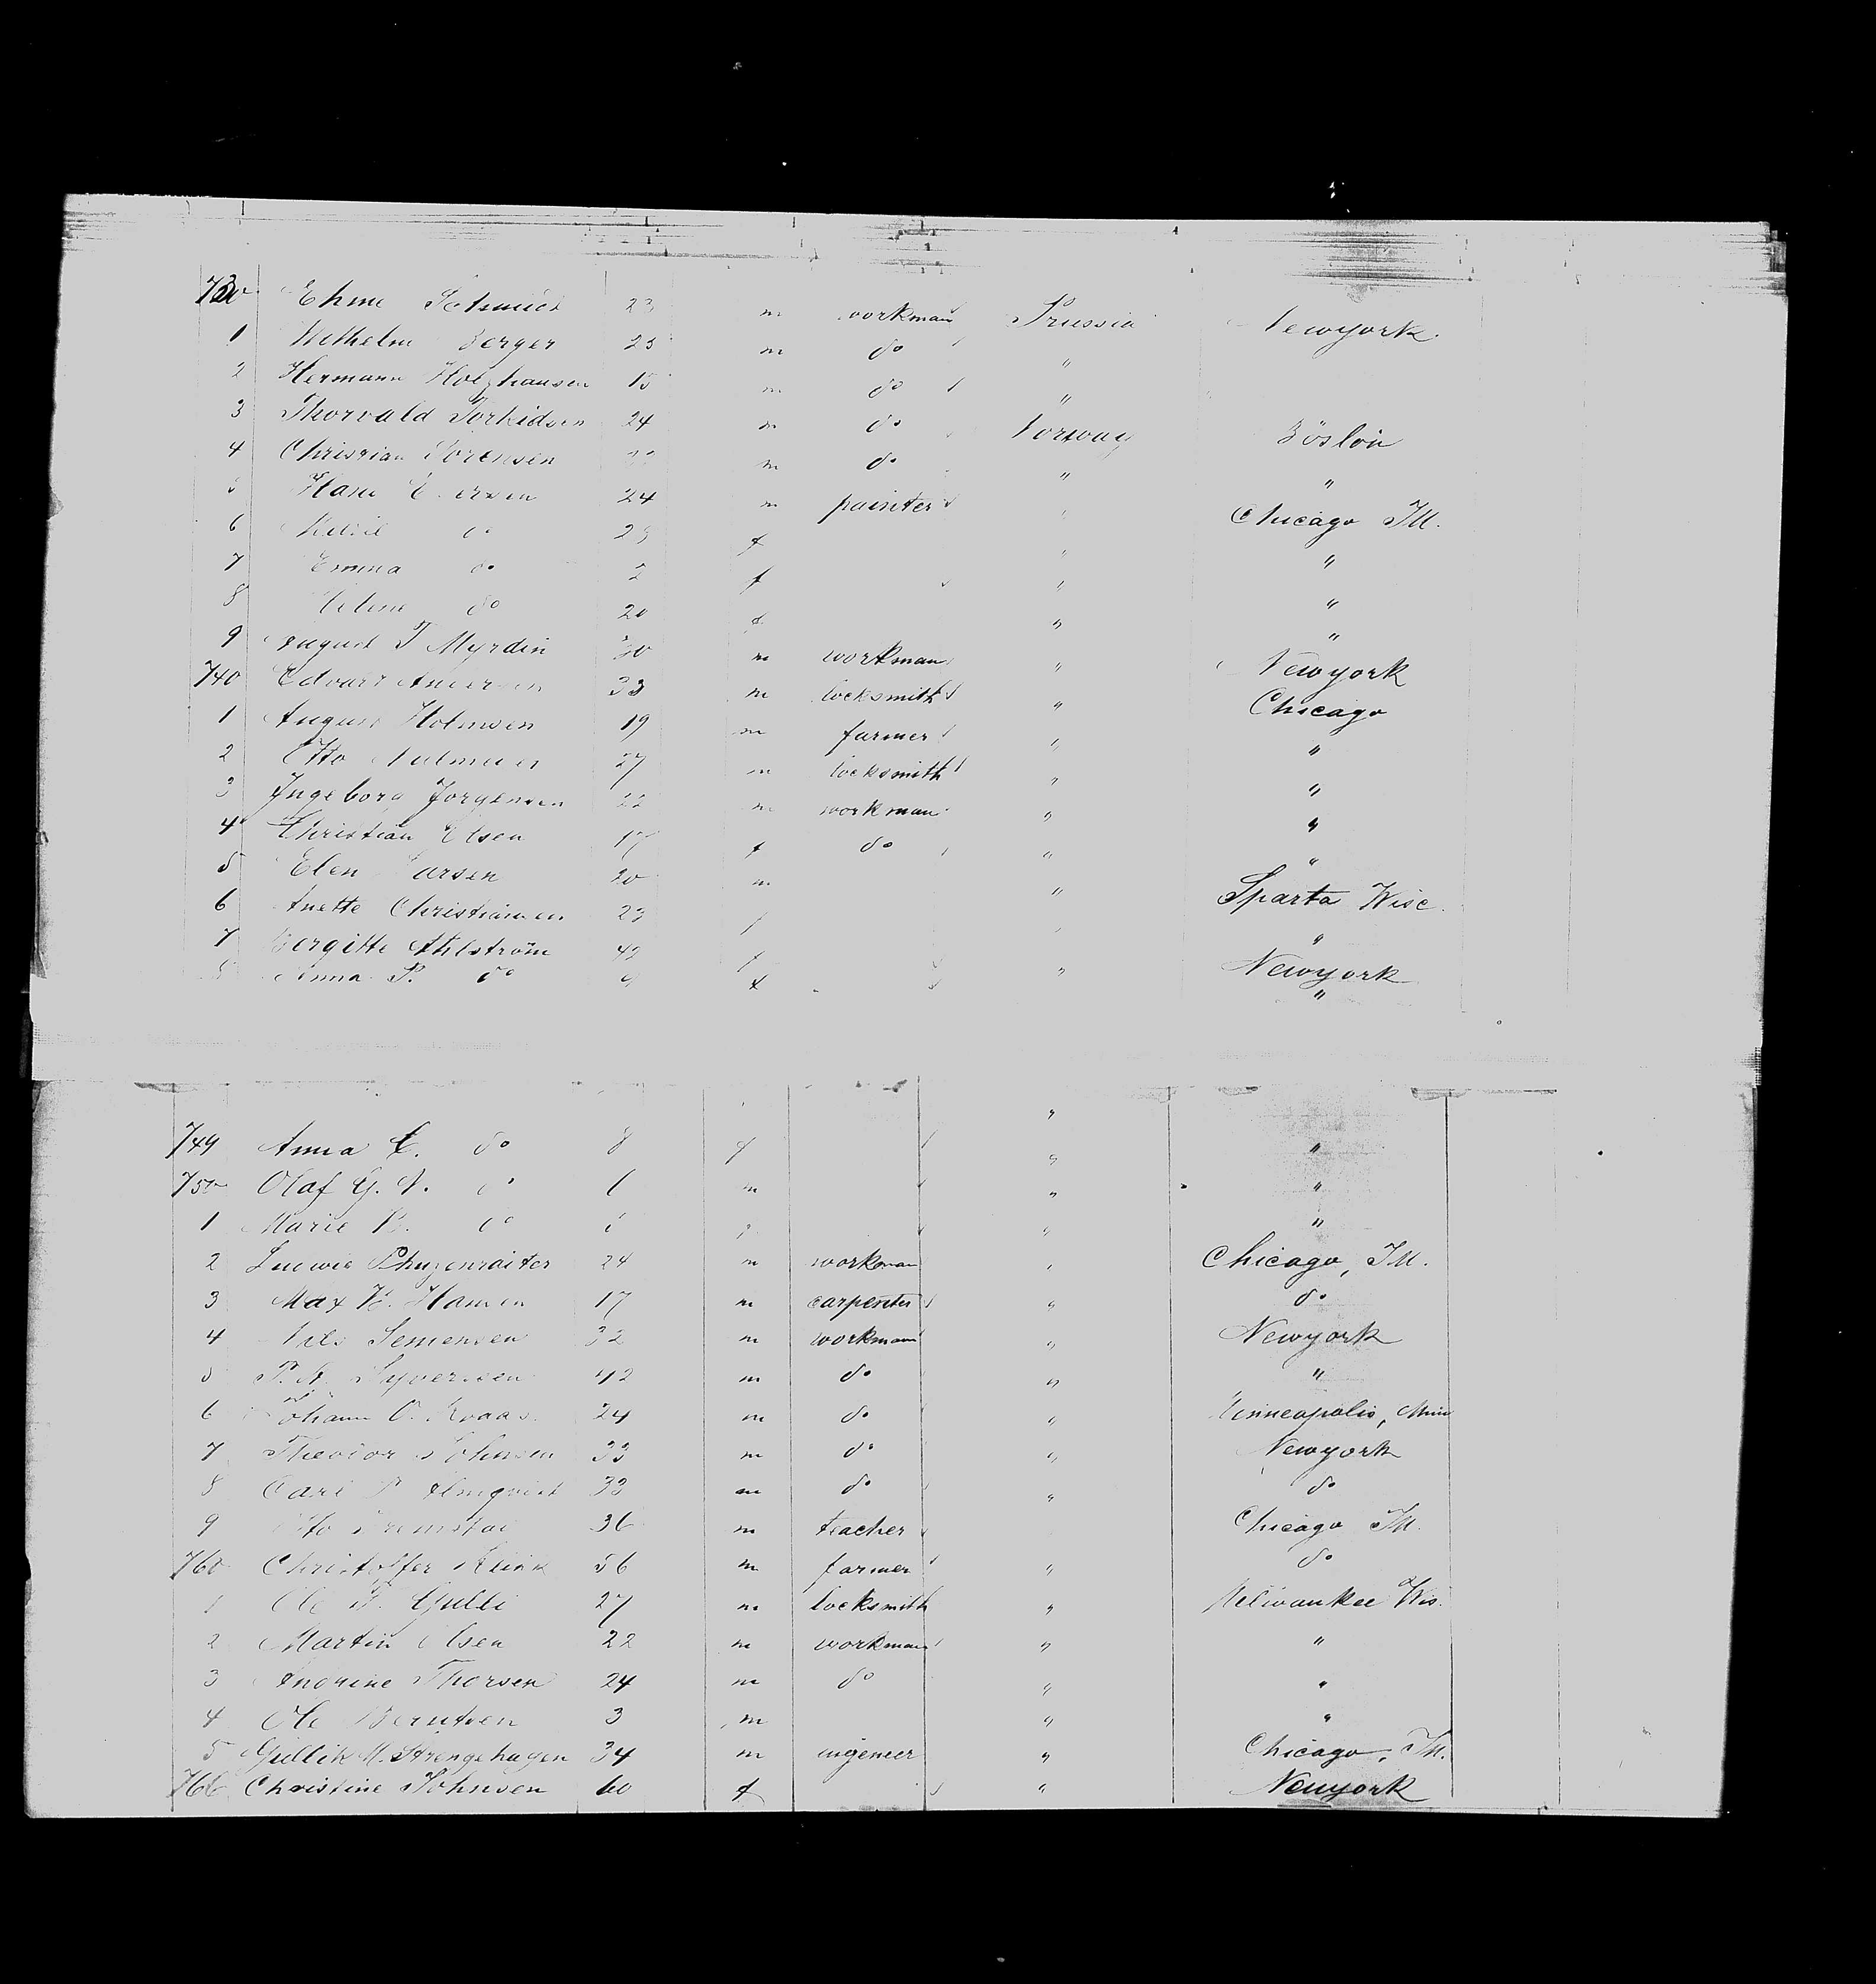 730 Ehme Schmidt 23 m workman Prussia Newyork.
1 Wilhelm Berger 25 m do "
2 Hermann Holzhausen 15 m do "
3 Thorvald Torkidsen 24 m do Norway Boston
4 Christian Sorensen m do " "
5 Hans 24 m painter " Chicago Ill.
6 do 29 f " "
7 Emma do 2 f " "
8 do 20 f " "
9 August T Myrdin 30 m workman " Newyork
740 Edvard Andersen 33 m locksmith " Chicago
1 August Holmsen 19 m farmer " "
2 Otto 27 m locksmith " "
3 Ingeborg Jorgensen 22 m workman " "
4 Christian Olsen 17 f do " "
5 Elen Larsen 20 m " Sparta Wisc.
6 Anette Christiansen 23 f " "
7 Bergitte Ahlström 42 f " Newyork
8 Anna P. do 9 f "
"
749 Anna C. do 8 f " "
750 Olaf G. A. do 6 m " "
1 Marie do f " "
2 Ludwig 24 m workman " Chicago, Ill.
3 Max B. Hansen 17 m carpenter " do
4 Nils Semensen 32 m workman " Newyork
5 P. A. Syversen 42 m do " "
6 Johann O. Kraas 24 m do " Minneapolis, Minn
7 Theodor Johnsen 33 m do " Newyork
8 Carl P Almqvist 32 m do " do
9 Otto 36 m teacher Chicago Ill.
760 Christoffer Klink 56 m farmer " do
1 Ole T. Gulli 27 m locksmith " Milwaukee Wis.
2 Martin Olsen 22 m workman " "
3 Andrine Thorsen 24 m do " "
4 Ole Berntsen 3 m " "
5 Gullik M. Strengehagen 34 m ingeneer " Chicago, Ill.
766 Christine Johnsen 60 f " Newyork